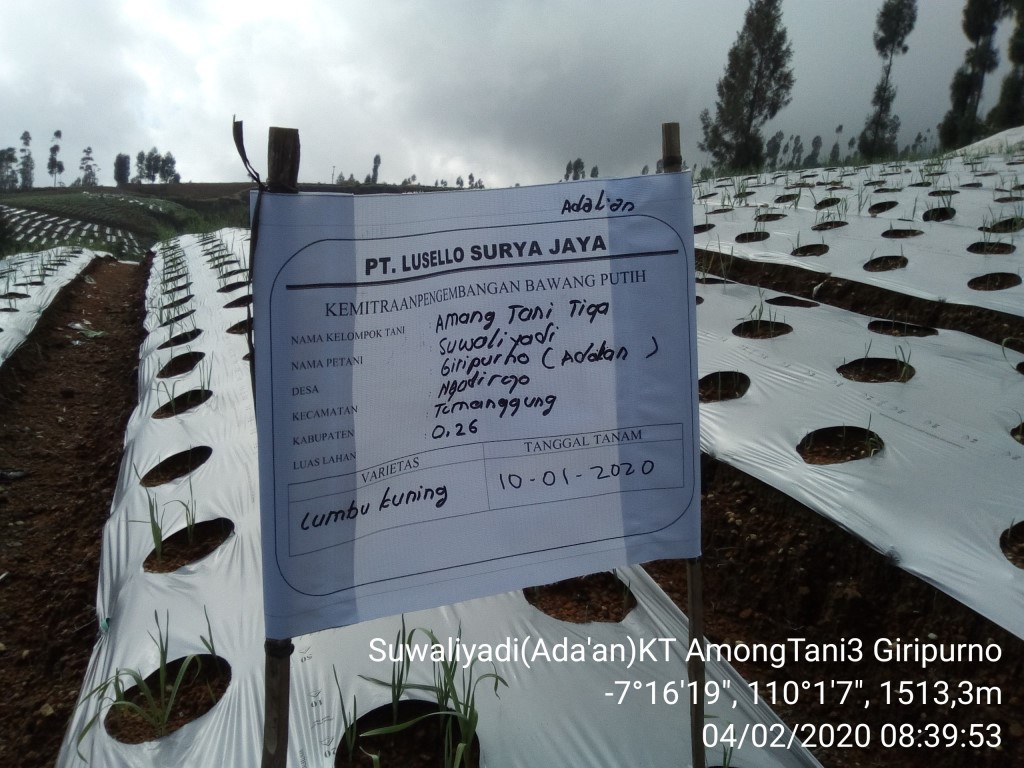 Adalan
PT. LUSELLO SURYA JAYA
KEMITRAANPENGEMBANGAN BAWANG PUTIH
NAMA KELOMPOK TANI : Amang Tani Tiga
NAMA PETANI : Suwaliyadi
DESA : Giripurno (Adalan)
KECAMATAN : Ngadirojo
KABUPATEN : Temanggung
LUAS LAHAN : 0.26
VARIETAS TANGGAL TANAM
Lumbu kuning 10-01-2020
Suwaliyadi(Ada'an)KT AmongTani3 Giripurno
-7°16'19", 110°1'7", 1513,3m
04/02/2020 08:39:53